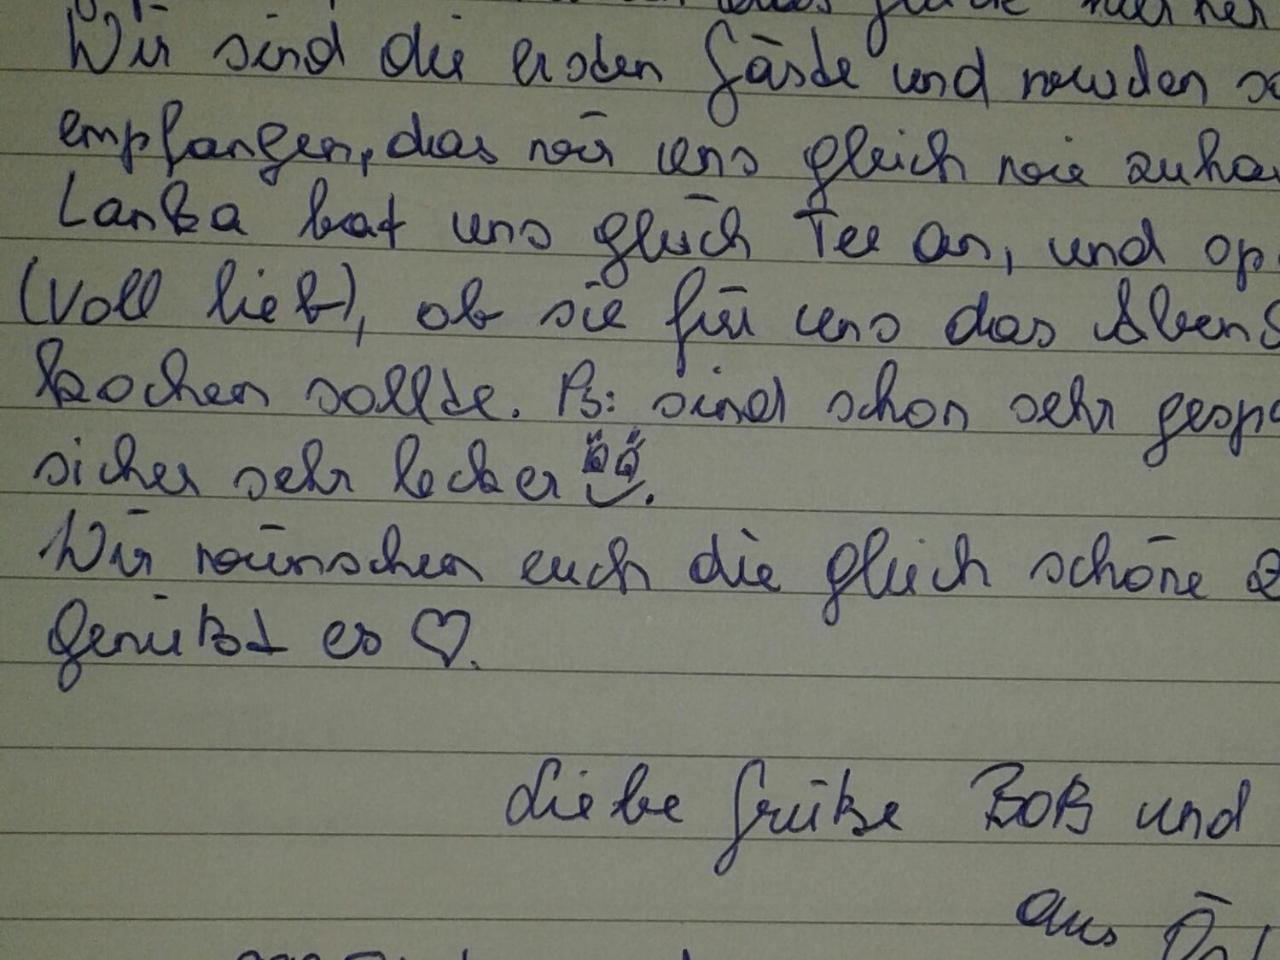 Wir sind die ersten Gäste und wurden
empfangen, das wir uns gleich wie
Lanka bat uns gleich Tee an, und
(voll lieb), ob sie für uns das
kochen sollte. PS: sind schon sehr
sicher sehr lecker
Wir wünschen euch die gleich schöne
genüßt es ♡.
Liebe Grüße BOB und
aus